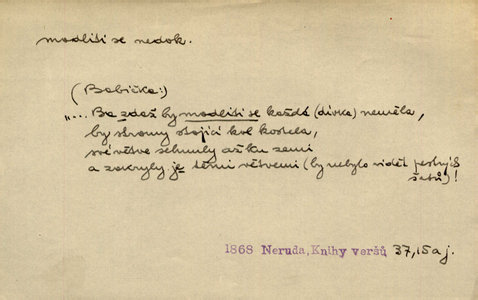 modliti se nedok.
(Babička:)
„... Ba zdaž by modliti se každá (dívka) neměla,
by stromy stojící kol kostela,
své větve sehnuly až ku zemi
a zakryly je těmi větvemi (by nebylo vidět pestrých
šatů)!
1868 Neruda, Knihy veršů 37, 15 a j.